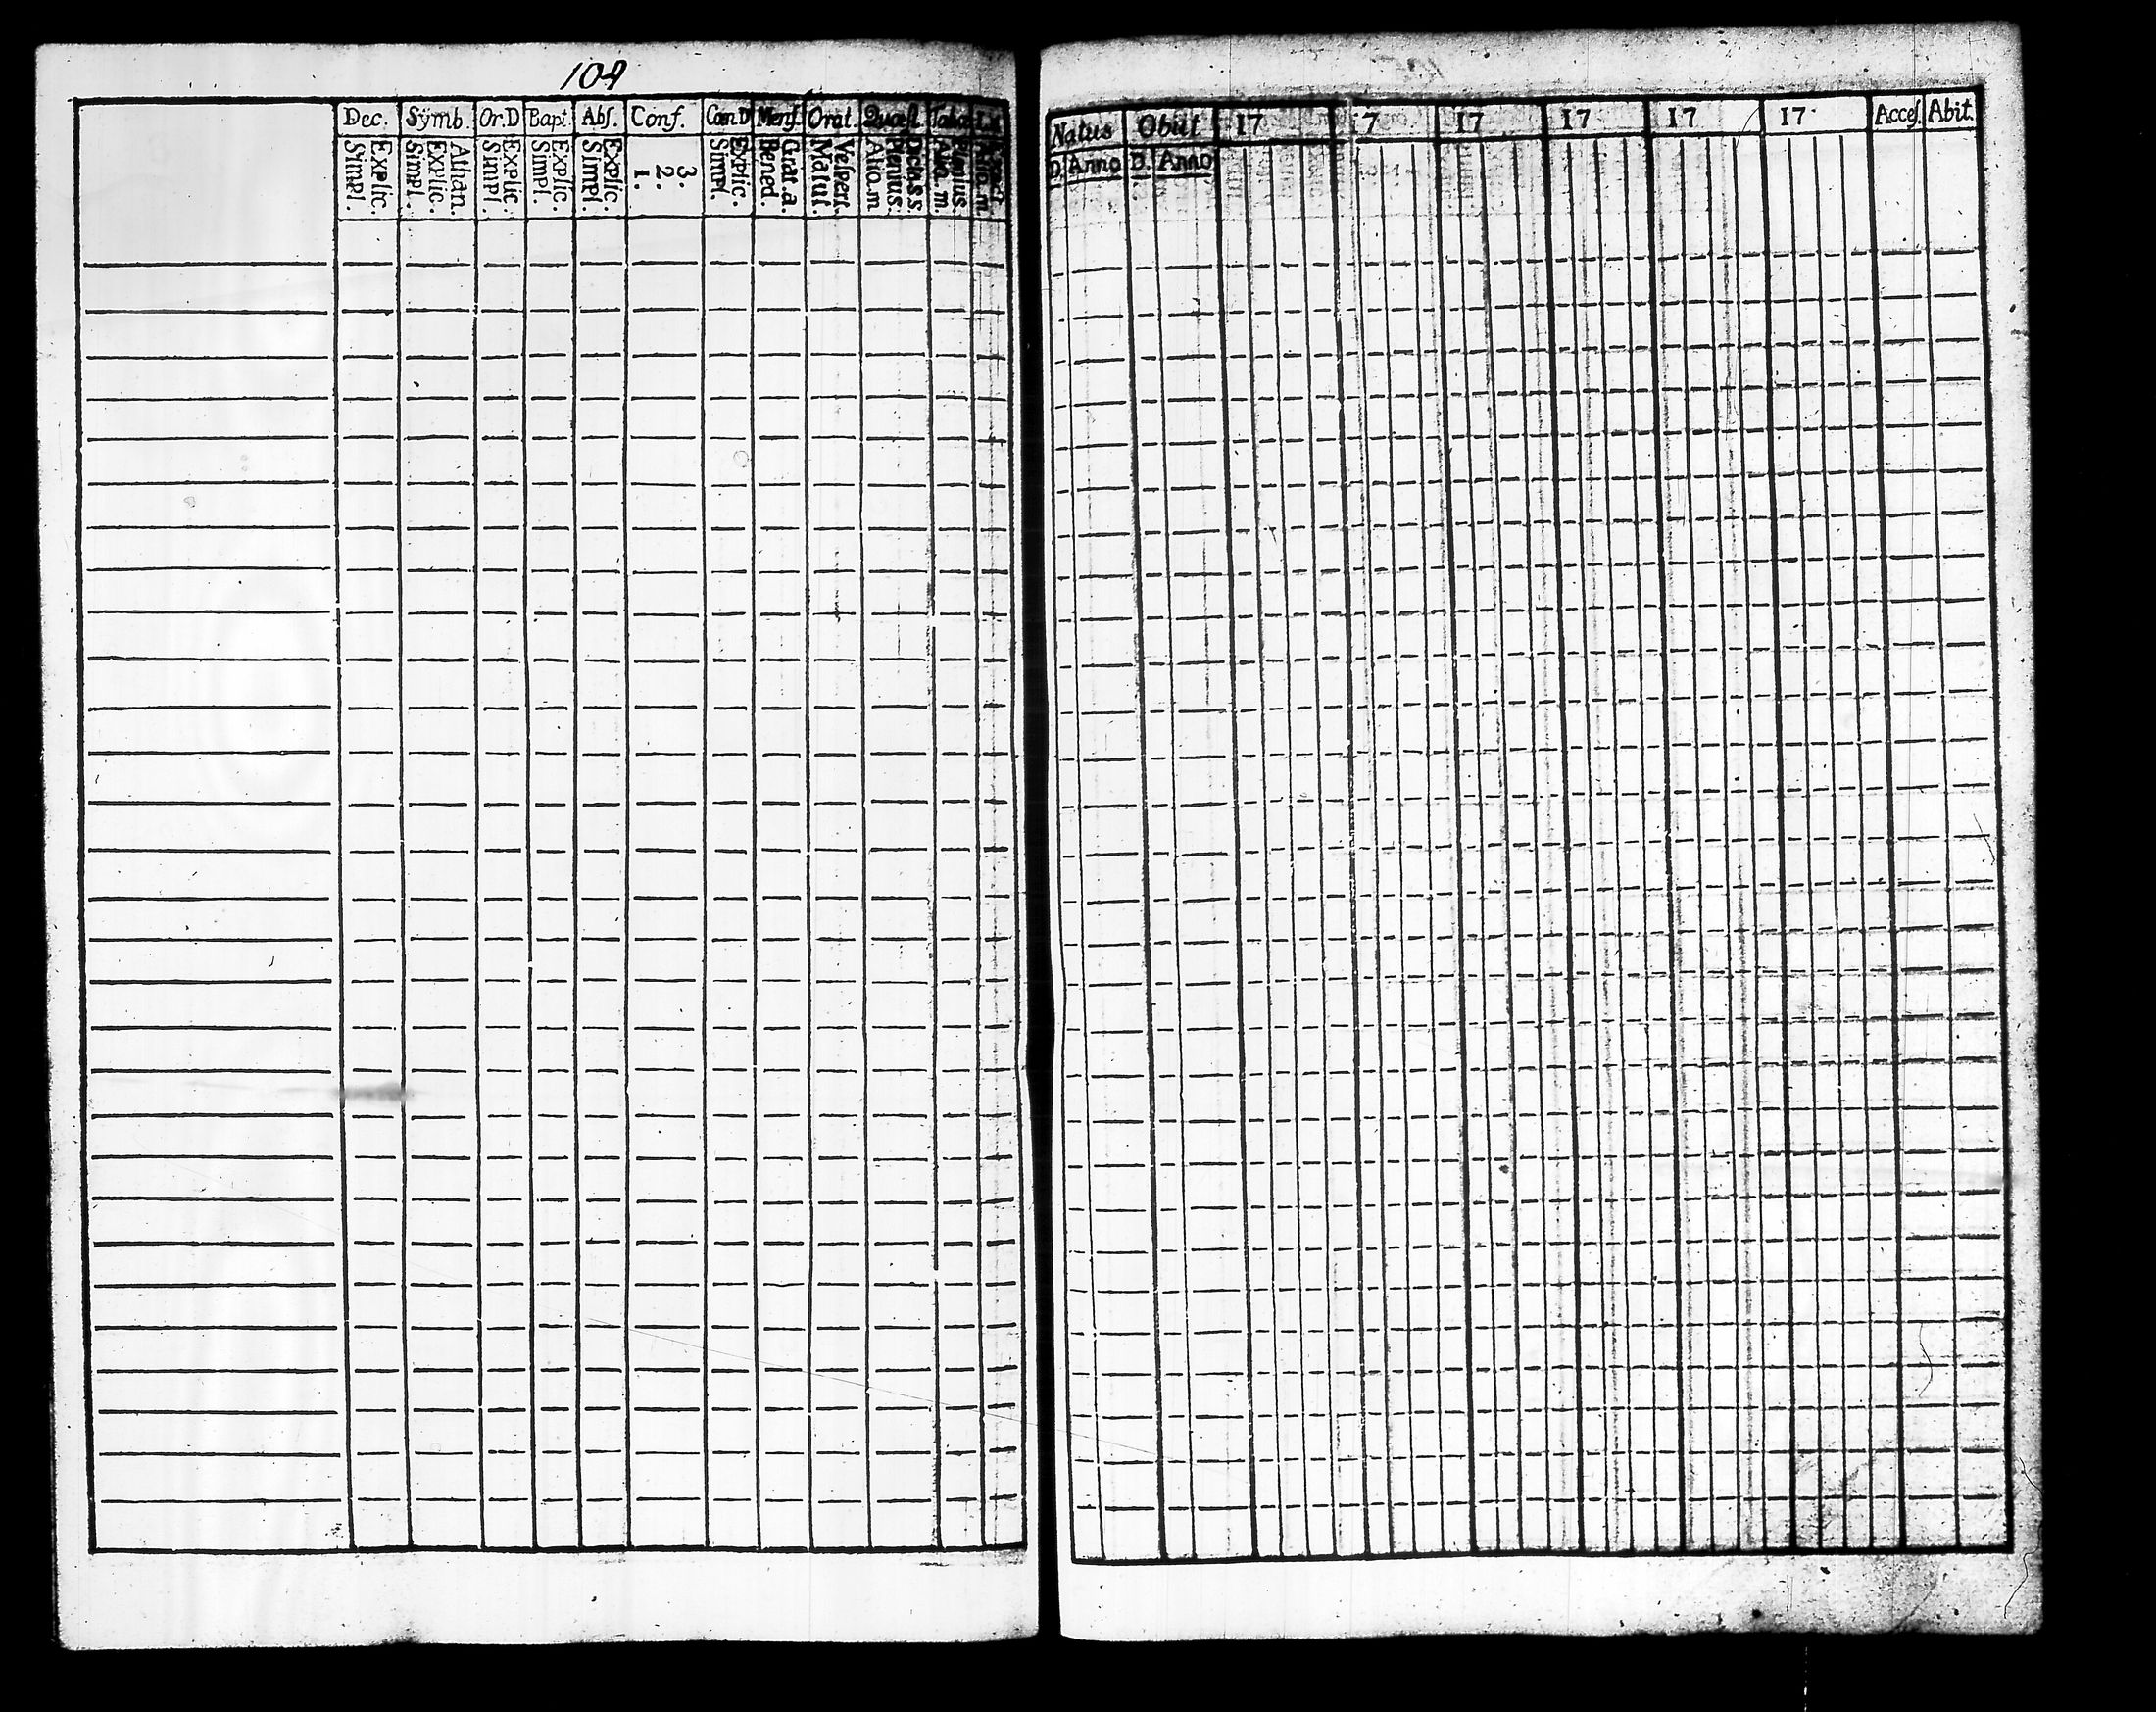 104
Dec. Sÿmb. Or.D Bapt. Abſ. Conf. Cœn.D Menſ. Orat. Quæſt.
Explic. Simpl. Athan. Explic. Simpl. Explic. Simpl. Explic. Simpl. Explic. Simpl. 3. 2. 1. Explic. Simpl. Grat.a. Bened. Veſpert. Matut. Dicta.s.s. Plenius. Alio.m Plenius. Alio.m.
Natus Obiit 17 17 17 17 17 17 Acceſ. Abit.
D. Anno D. Anno